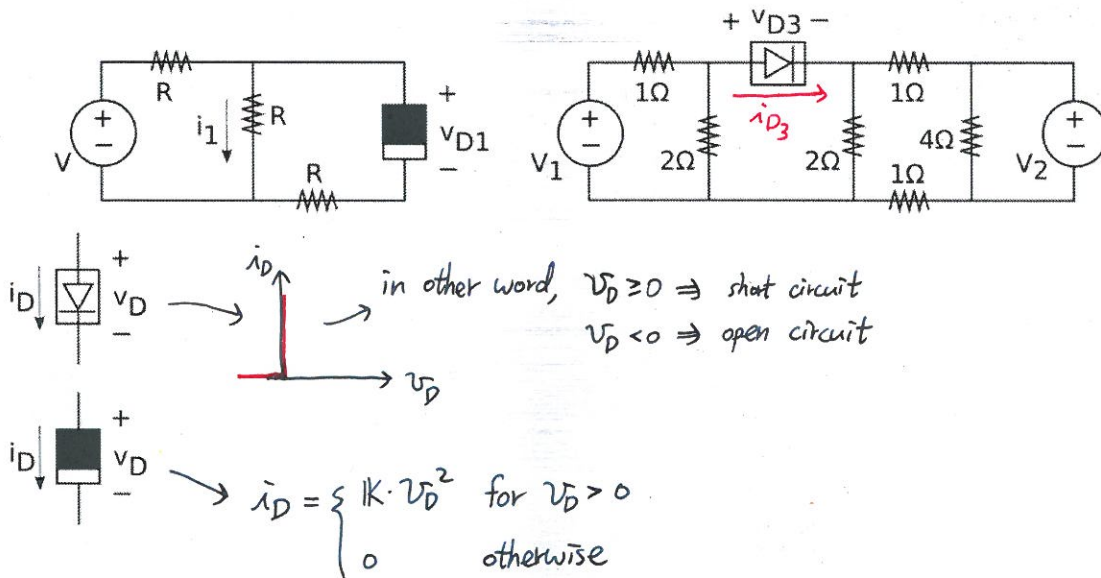 R
i1
R
V
R
+
vD1
−
+ vD3 −
1Ω
iD3
1Ω
V1
2Ω
2Ω
4Ω
1Ω
V2
iD
+
vD
−
iD
vD
in other word, vD ≥ 0 ⇒ short circuit
vD < 0 ⇒ open circuit
iD
+
vD
−
iD = { K · vD² for vD > 0
0 otherwise